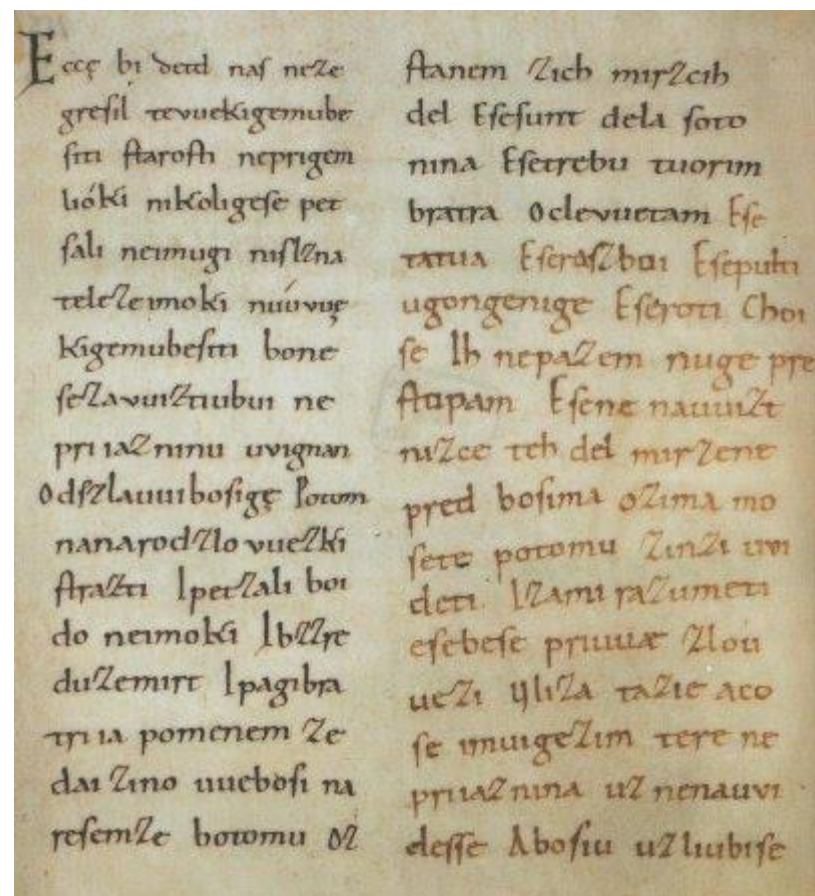 Eccę bi detd naſ neze
greſil tevuekigemube
ſiti ſtaroſti neprigem
lióki nikoligeſe pet
ſali neimugi niſlzna
teleze imoki núúvuę
kigemubeſiti bone
ſezavuiztiubui ne
pri iaz ninu uvignan
Odſzlauuiboſigę Potom
nanarodzlo vuezki
ſtrazti Ipetzali boi
do neimoki Ibzzre
duzemirt Ipagibra
tri ia pomenem ze
dai zino uueboſi na
reſemze botomu oz
ſtanem zich mirzcih
del Eſeſunt dela ſoto
nina Eſetrebu tuorim
bratra Oclevuetam Eſe
tatua Eſeraſzboi Eſepulti
ugongenige Eſeroti Choi
ſe Ih nepazem nuge pre
ſtopam Eſene nauuizt
nizce teh del mirzene
pred boſima ozima mo
ſete potomu zinzi uvi
deti Izami razumeti
eſebeſe priuuæ zlou
uezi Ŋliza tazie aco
ſe imuigezim tere ne
priiaznina uz nenauvi
deſſe Aboſiu uzliubiſe